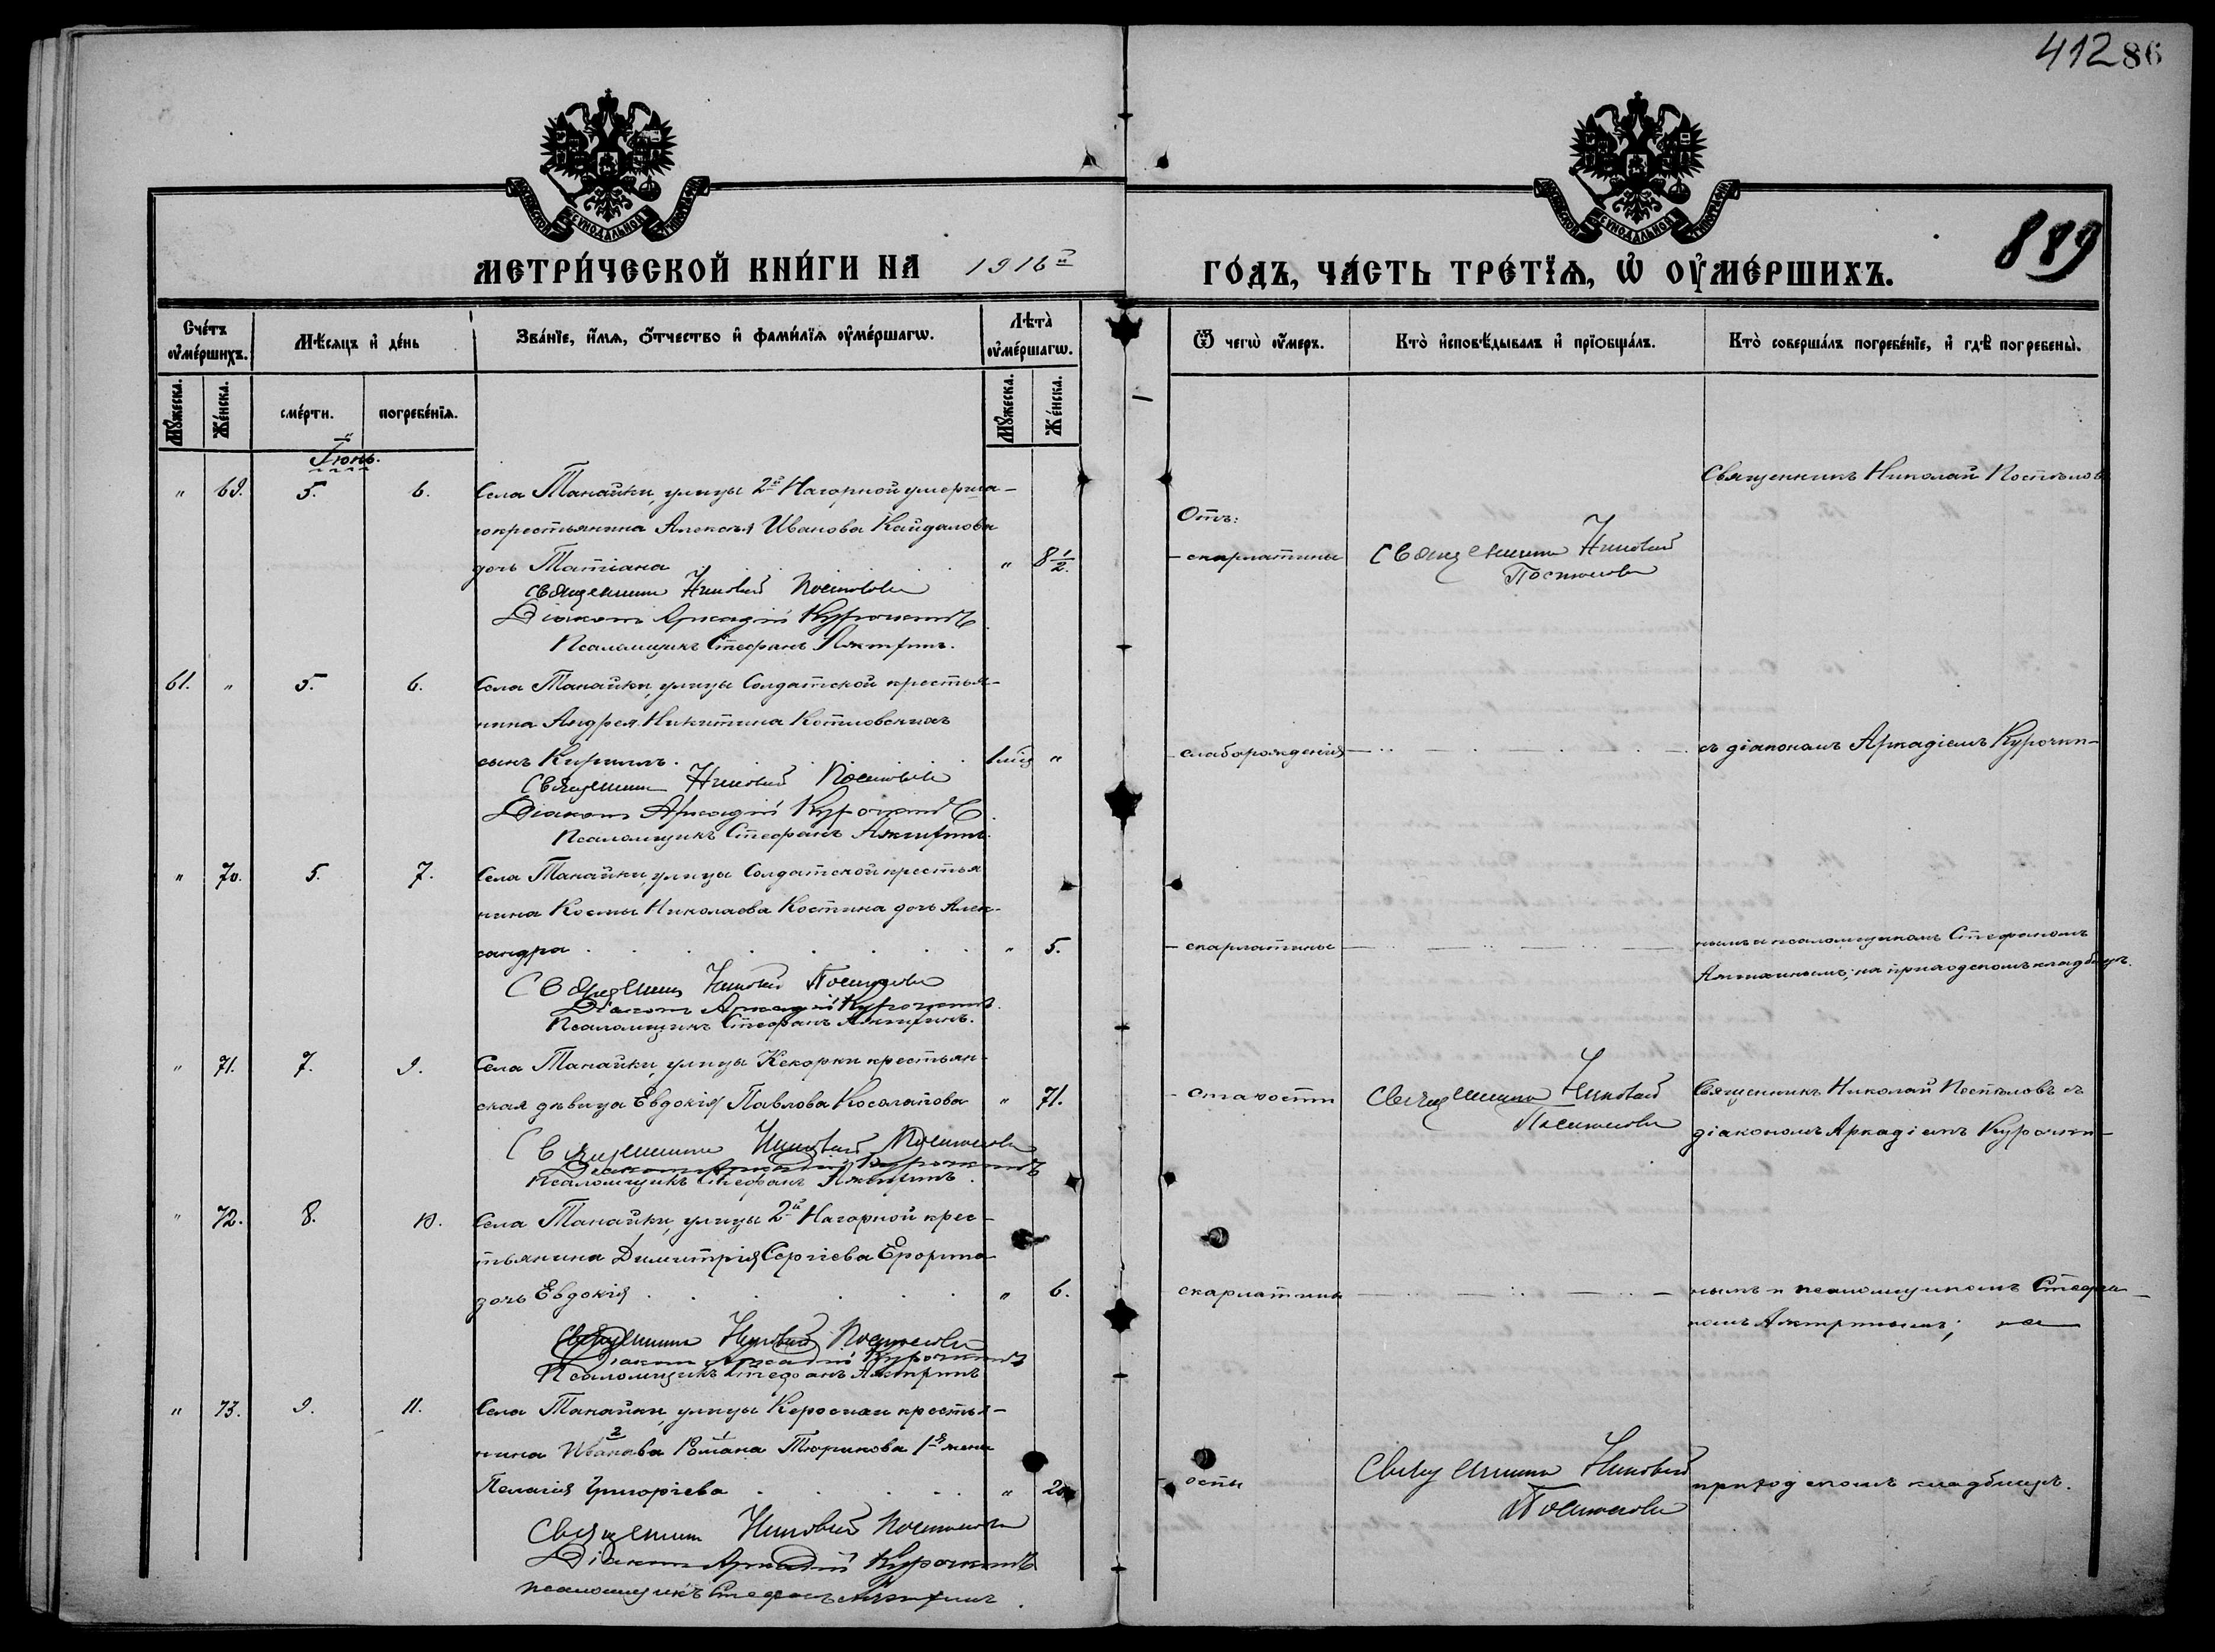 412 86
889
МЕТРИ́ЧЕСКОЙ КНИ́ГИ НА 1916й
ГО́ДЪ, ЧА́СТЬ ТРЕ́ТЇѦ, Ѡ҆ ОУ҆МЕ́РШИХЪ.
Сче́тъ оу҆ме́ршихъ.
Мѣ́сяцъ и҆ де́нь
Зва́нїе, и҆́мѧ, ѻ҆́тчество и҆ фами́лїѧ оу҆ме́ршагѡ.
Лѣта̀ оу҆ме́ршагѡ.
Ѿ чегѡ̀ оу҆́меръ.
Кто̀ и҆сповѣ́дывалъ и҆ прїѻбща́лъ.
Кто̀ соверша́лъ погребе́нїе, и҆ гдѣ̀ погребены̀.
Мꙋ́жеска.
Же́нска.
сме́рти.
погребе́нїѧ.
Мꙋ́жеска.
Же́нска.
Іюнь.
" 69. 5. 6. Села Танайки, улицы 2й Нагорной умерша-
го крестьянина Алексѣя Иванова Кайдалова
дочь Татіана " 8 1/2.
Священникъ Николай Поспѣловъ
Діаконъ Аркадій Курочкинъ
Псаломщикъ Стефанъ
Отъ:
- скарлатины
Священникъ Николай
Поспѣловъ
Священникъ Николай Поспѣловъ
61. " 5. 6. Села Танайки, улицы Солдатской крестья-
нина Андрея Никитина Котловскихъ
сынъ Кириллъ. "
Священникъ Николай Поспѣловъ
Діаконъ Аркадій Курочкинъ
Псаломщикъ Стефанъ
- слаборожденія
съ діакономъ Аркадіемъ Курочки-
" 70. 5. 7. Села Танайки, улицы Солдатской крестья
нина Космы Николаева Костина дочь Алек-
сандра " 5.
Священникъ Николай Поспѣловъ
Діаконъ Аркадій Курочкинъ
Псаломщикъ Стефанъ
- скарлатины
нымъ и псаломщикомъ Стефаномъ
на приходскомъ кладбищѣ.
" 71. 7. 9. Села Танайки, улицы Кекорки крестьян-
ская дѣвица Евдокія Павлова Косолапова " 71.
Священникъ Николай Поспѣловъ
Діаконъ Аркадій Курочкинъ
Псаломщикъ Стефанъ
- старости
Священникъ Николай
Поспѣловъ
Священникъ Николай Поспѣловъ съ
діакономъ Аркадіемъ Курочки-
" 72. 8. 10. Села Танайки, улицы 2й Нагорной крес-
тьянина Димитрія Сергіева
дочь Евдокія " 6.
Священникъ Николай Поспѣловъ
Діаконъ Аркадій Курочкинъ
Псаломщикъ Стефанъ
скарлатины
нымъ и псаломщикомъ Стефа-
номъ на
" 73. 9. 11. Села Танайки, улицы крестья-
нина Иванова Романа Тюрикова 1я жена
Пелагія Григорьева "
Священникъ Николай Поспѣловъ
Діаконъ Аркадій Курочкинъ
псаломщикъ Стефанъ
- оспы
Священникъ Николай
Поспѣловъ
приходскомъ кладбищѣ.